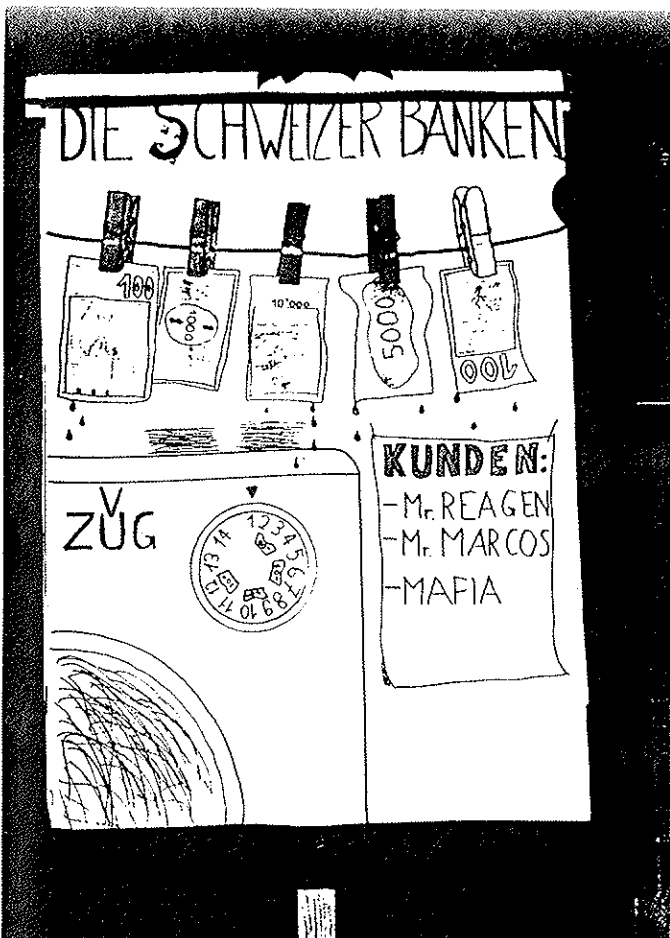 DIE SCHWEIZER BANKEN
100
1000
10'000
5000
100
KUNDEN:
-Mr. REAGEN
-Mr. MARCOS
-MAFIA
V
ZUG
1 2 3 4 5 6 7 8 9 10 11 12 13 14